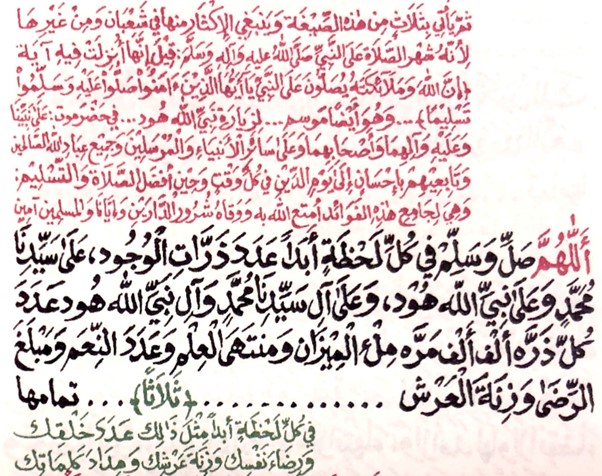 ثم يأتي بثلاث من هذه الصيغة وينبغي الإكثار منها في شعبان ومن غيرها
لأنه شهر الصلاة على النبي صلى الله عليه وآله وسلم: قيل إنها أنزلت فيه آية
﴿إن الله وملائكته يصلون على النبي يا أيها الذين ءامنوا صلوا عليه وسلموا
تسليما﴾... وهو أيضا موسم... لزيارة نبي الله هود... في حضرموت: على نبينا
وعليه وآلهما وأصحابهما وعلى سائر الأنبياء والمرسلين وجميع عباد الله الصالحين
وتابعيهم بإحسان إلى يوم الدين في كل وقت وحين أفضل الصلاة والتسليم:
وهي لجامع هذه الفوائد أمتع الله به ووقاه شرور الدارين وإيانا والمسلمين آمين
أَللّٰهُمَّ صَلِّ وَسَلِّمْ فِي كُلِّ لَحْظَةٍ أَبَدًا عَدَدَ ذَرَّاتِ الْوُجُودِ، عَلَىٰ سَيِّدِنَا
مُحَمَّدٍ وَعَلَىٰ نَبِيِّ اللّٰه هُود، وَعَلَىٰ آلِ سَيِّدِنَا مُحَمَّدٍ وَآلِ نَبِيِّ اللّٰه هُود عَدَدَ
كُلِّ ذَرَّه أَلْفَ أَلْفِ مَرَّه مِلْءَ الْمِيزَان وَمُنْتَهَى الْعِلْمِ وَعَدَدَ النِّعَمِ وَمَبْلَغَ
الرِّضَىٰ وَزِنَةَ الْعَرْش ............. ﴿ثَلَاثًا﴾... تمامها
فِي كُلِّ لَحْظَةٍ أَبَدًا مِثْلَ ذٰلِكَ عَدَدَ خَلْقِكَ
وَرِضَاءَ نَفْسِكَ وَزِنَةَ عَرْشِكَ وَمِدَادَ كَلِمَاتِكَ